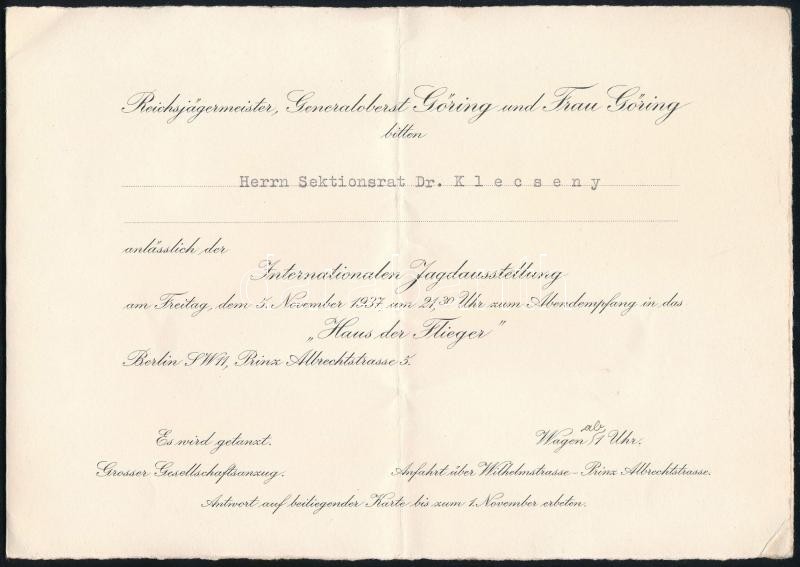 Reichsjägermeister, Generaloberst Göring und Frau Göring
bitten
Herrn Sektionsrat Dr. K l e c s e n y
anlässlich der
Internationalen Jagdausstellung
am Freitag, dem 5. November 1937 um 21,30 Uhr zum Abendempfang in das
„Haus der Flieger"
Berlin SW11, Prinz Albrechtstrasse 5.
Es wird getanzt.
Wagen ab 1 Uhr.
Grosser Gesellschaftsanzug.
Anfahrt über Wilhelmstrasse - Prinz Albrechtstrasse.
Antwort auf beiliegender Karte bis zum 1. November erbeten.